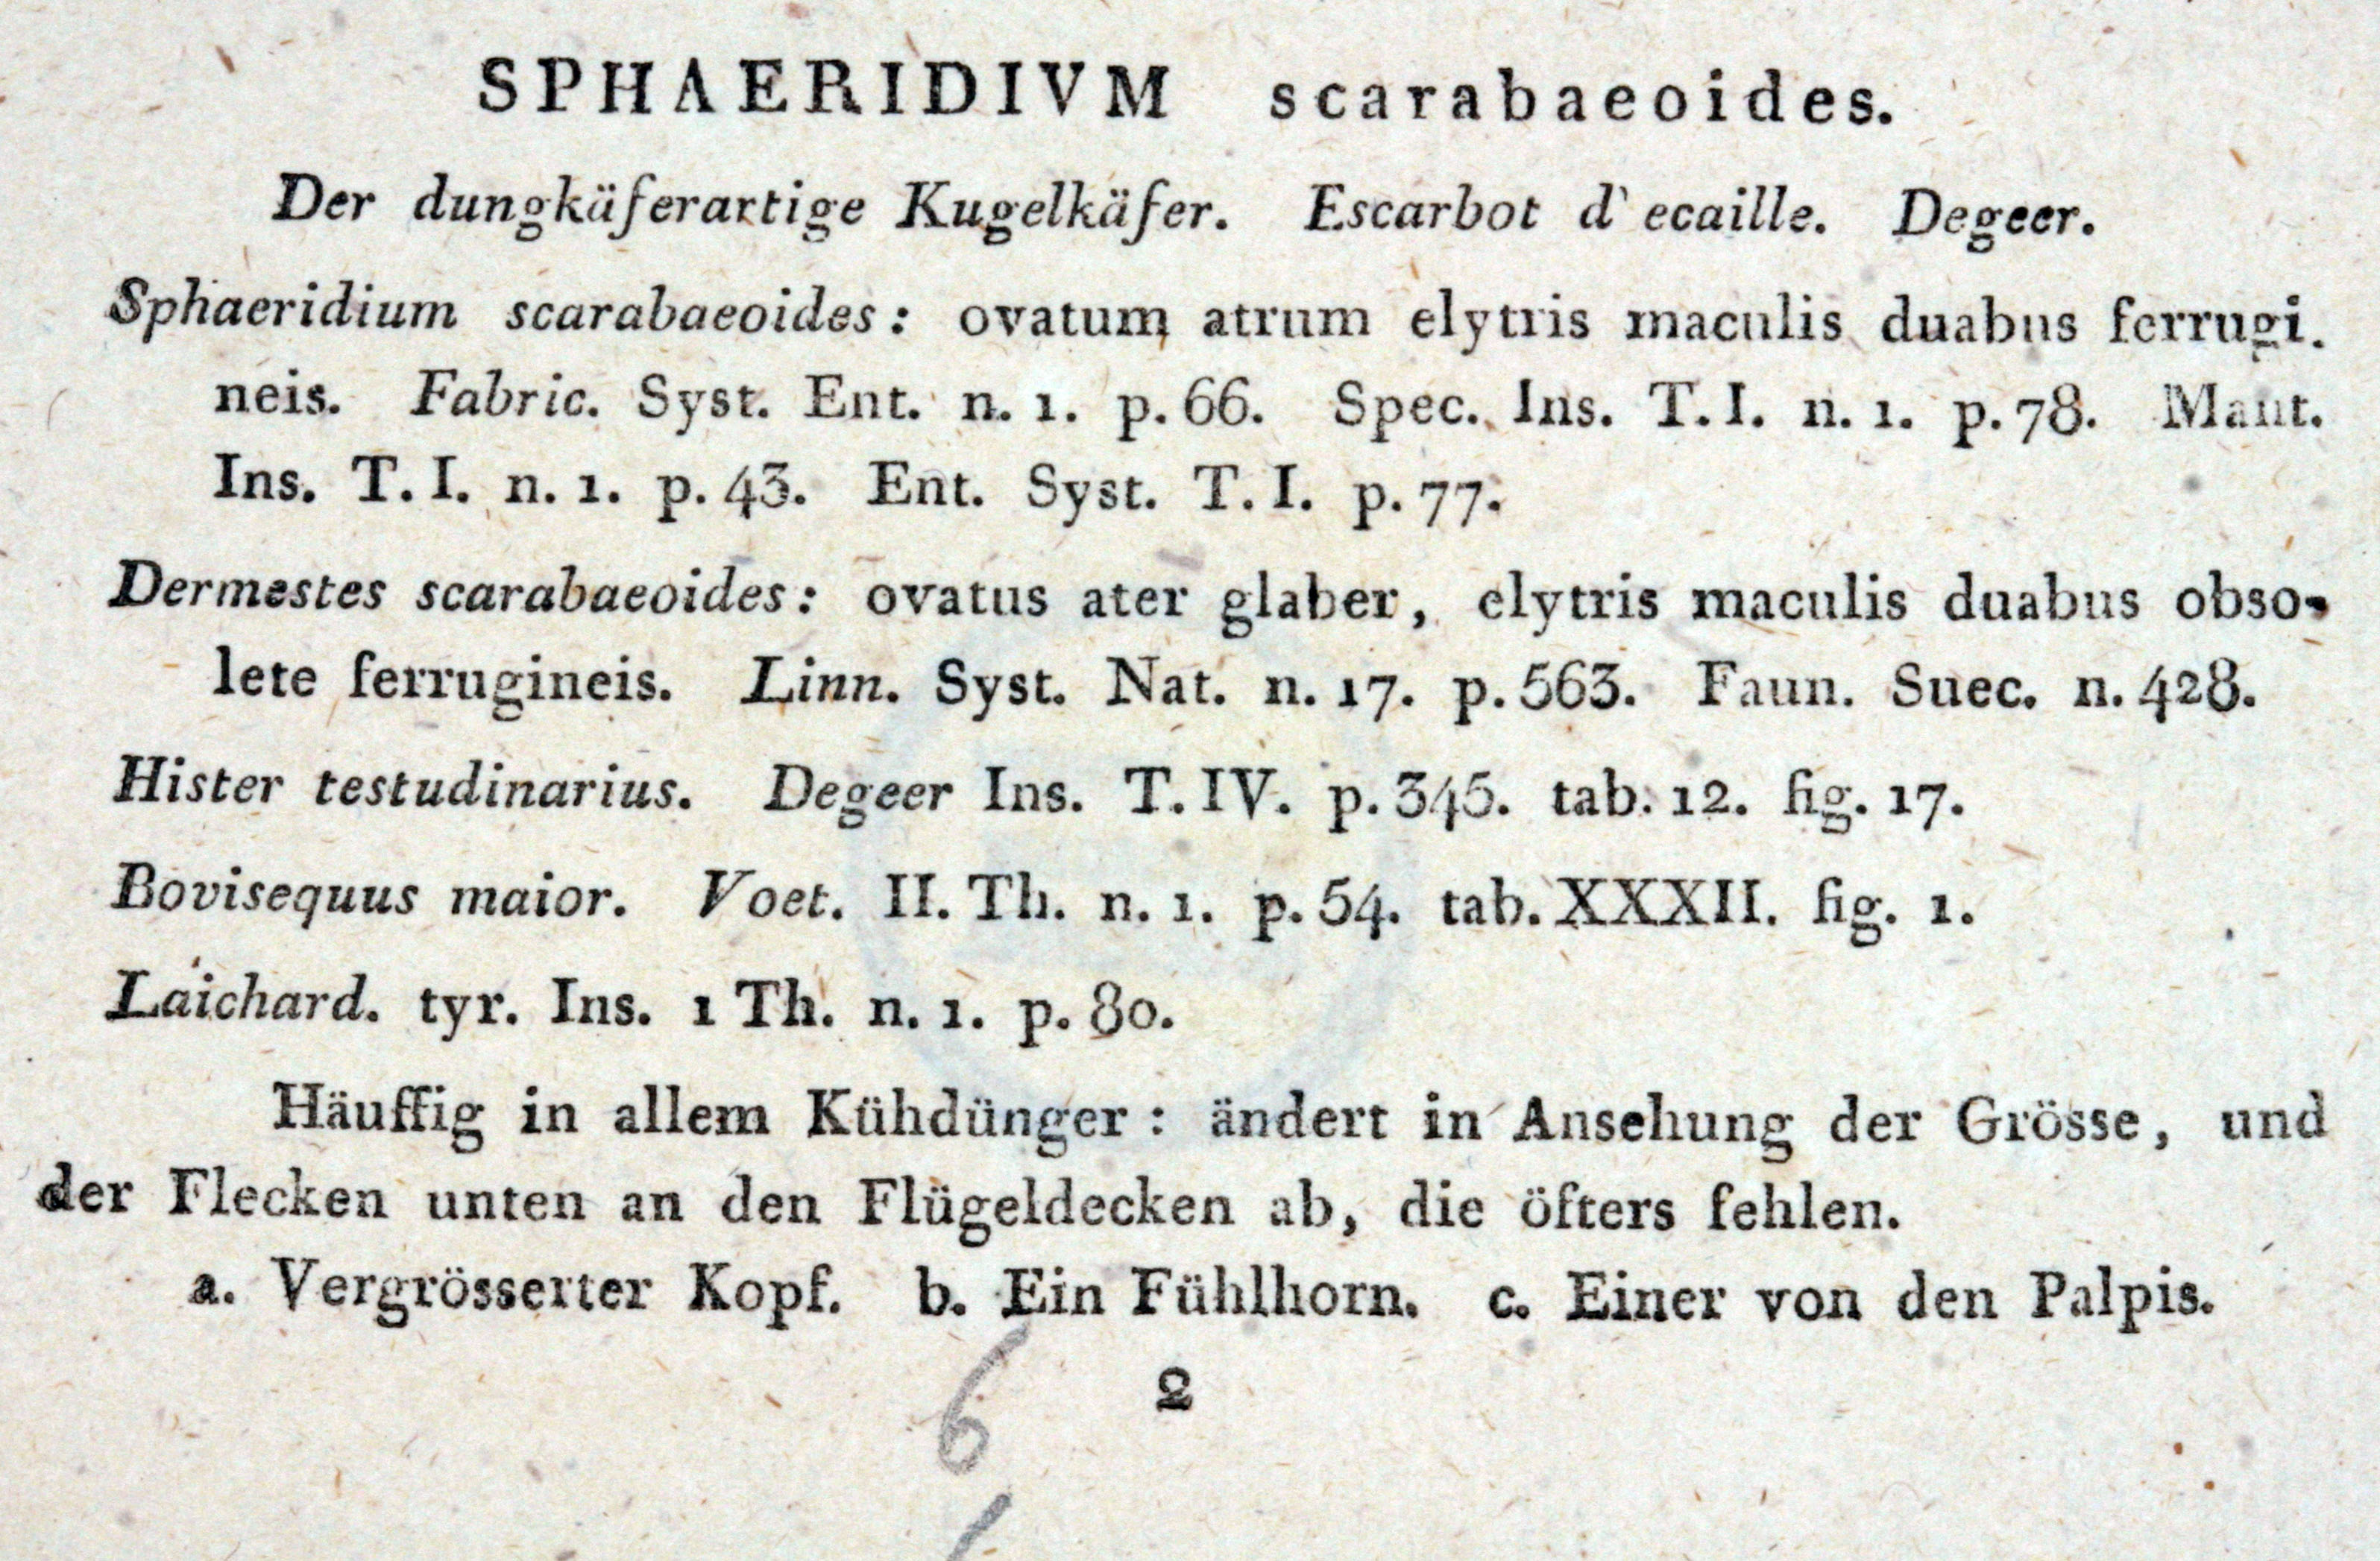 SPHAERIDIVM scarabaeoides.
Der dungkäferartige Kugelkäfer. Escarbot d' ecaille. Degeer.
Sphaeridium scarabaeoides: ovatum atrum elytris maculis duabus ferrugi.
neis. Fabric. Syst. Ent. n. 1. p. 66. Spec. Ins. T. I. n. 1. p. 78. Mant.
Ins. T. I. n. 1. p. 43. Ent. Syst. T. I. p. 77.
Dermestes scarabaeoides: ovatus ater glaber, elytris maculis duabus obso-
lete ferrugineis. Linn. Syst. Nat. n. 17. p. 563. Faun. Suec. n. 428.
Hister testudinarius. Degeer Ins. T. IV. p. 345. tab. 12. fig. 17.
Bovisequus maior. Voet. II. Th. n. 1. p. 54. tab. XXXII. fig. 1.
Laichard. tyr. Ins. 1 Th. n. 1. p. 80.
Häuffig in allem Kühdünger: ändert in Ansehung der Grösse, und
der Flecken unten an den Flügeldecken ab, die öfters fehlen.
a. Vergrösserter Kopf. b. Ein Fühlhorn. c. Einer von den Palpis.
2
6